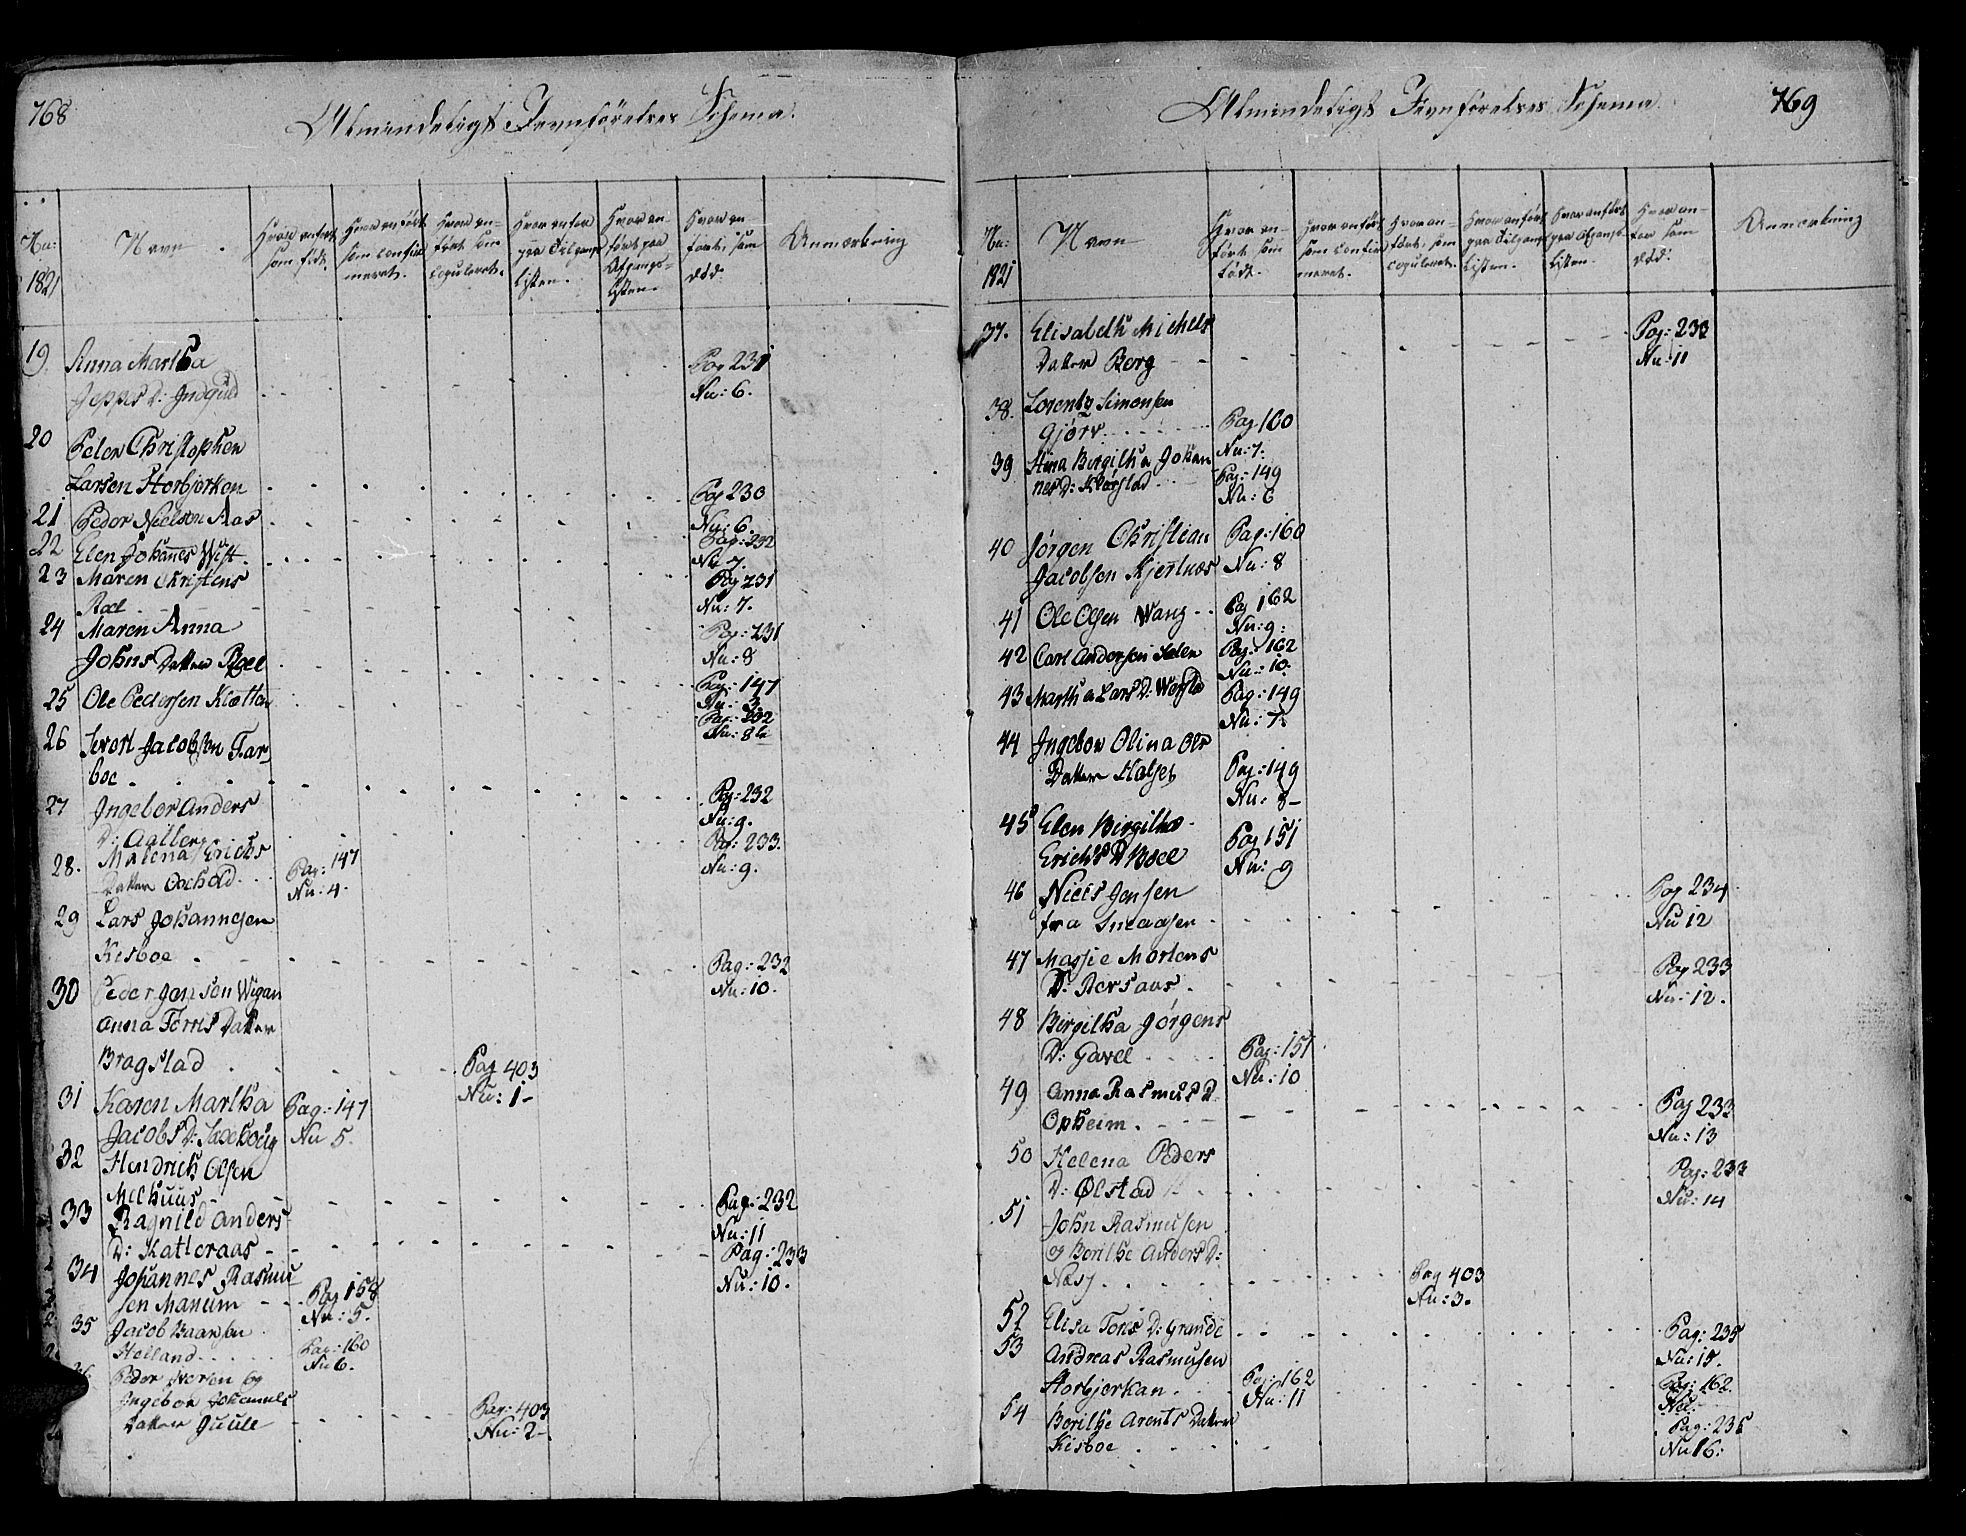 768
Almindeligt Jevnförelses Schema.
Nu:
1821
Navn
Hvor anført
som født.
Hvor anført
som confir
meret.
Hvor an-
ført som
copuleret.
Hvor anfør
paa Tilgangs
Listen.
Hvor an-
ført paa
Afgangs-
Listen.
Hvor an-
ført, som
død.
Anmerkning
19. Anna Martha
Jeppes D: Indguld Pag 231
Nu: 6.
20 Peder Christopher
Larsen Storbjorken Pag 230
Nu: 6.
21 Peder Nielsen Aas
Pag: 232
Nu 7.
22 Elen Johannes Wist
23 Maren Christens
Roel
Pag 231
Nu: 7.
24 Maren Anna
Johns Datter Roel
Pag: 231
Nu: 8
25 Ole Pedersen Klotten
Pag: 147
Nu: 3.
26 Sivert Jacobsen Far
boe
Pag: 232
Nu: 8
27 Ingebor Anders
D:
Pag: 232
Nu: 9.
28. Malena Erichs
Datter Opholb
Pag: 147
Nu: 4.
Pag: 233.
Nu: 9.
29 Lars Johannesen
Kisboe
Pag: 232
Nu: 10.
30 Peder Jonsen Wigan
Anna Torris Datter
Bragstad
Pag 403
Nu: 1-
31 Karen Martha
Jacobs D: Saxehoug
Pag: 147
Nu 5.
32 Hendrich Olsen
Melhuus
Pag: 232
Nu: 11
33 Ragnild Anders
D: Katleraas
Pag: 233
Nu: 10.
34 Johannes Rasmu
sen Manum
Pag 158
Nu: 5.
35 Jacob Baarsen
Holland
Pag: 160
Nu 6.
36 Peder Iversen og
Ingebor Johannes
Datter Juule
Pag: 403
Nu: 2-
769
Almindeligt Jevnförelses Schema
Nu:
1821
Navn
Hvor an-
ført som
født.
Hvor anført
som confir
meret.
Hvor an-
ført, som
copuleret.
Hvor anført
paa Tilgangs
Listen.
Hvor anført
paa Afgangs
Listen.
Hvor an-
før som
død.
Anmerkning
37. Elisabeth Michels
Datter Berg
Pag: 233
Nu: 11
38. Lorentz Simonsen
Gjörv
Pag. 160
Nu: 7.
39 Stina Bergitha Johan
nes D: Klöfstad
Pag: 149
Nu: 6
40 Jörgen Christian
Jacobsen Kjerknæs
Pag: 160
Nu: 8
41 Ole Olsen Wang
Pag 162
Nu: 9:
42 Carl Andersen Salen
Pag: 162
Nu: 10.
43 Martha Lars D:
Pag: 149
Nu: 7.
44 Ingebor Olina Ols
Datter Halset
Pag: 149
Nu: 8-
45 Elen Birgitha
Erichs D Boel
Pag 151
Nu: 9
46 Niels Jensen
fra Snaasen
Pag 234
Nu 12
47 Massie Mortens
D: Rorsaas
Pag 233
Nu: 12.
48 Bergitha Jörgens
D: Gavel
Pag: 151
Nu: 10
49 Anna Rasmus D
Opheim
Pag 233
Nu: 13
50 Helena Peders
D: Ølstad
Pag: 233
Nu: 14
51 John Rasmusen
og Berithe Anders D:
Næss
Pag 403
Nu: 3.
52 Elisa Toris D: Grande
Pag: 235
Nu: 15.
53 Andreas Rasmusen
Storbjorkan
Pag: 162
Nu: 11
Pag: 162.
Nu:
54 Berithe Arents Datter
Kisboe
Pag: 235
Nu 16: